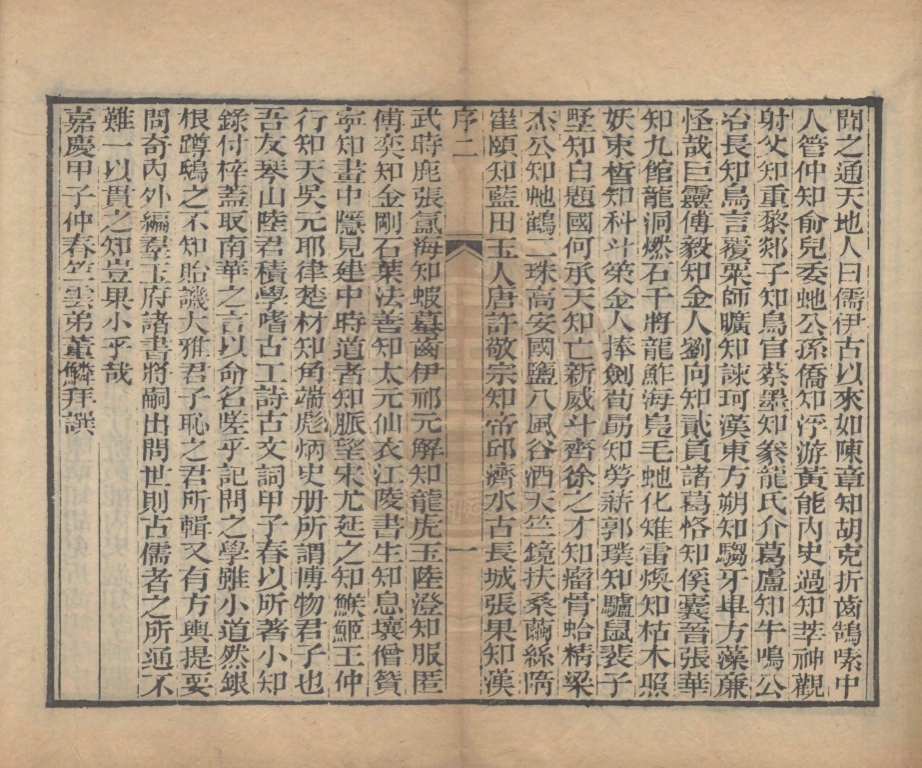 聞之通天地人曰儒伊古以來如陳章知胡克折齒鵠嗉中
人管仲知俞兒委虵公孫僑知浮游黃能內史過知莘神觀
射父知重黎郯子知鳥官蔡墨知豢龍氏介葛盧知牛鳴公
冶長知鳥言覆粟師曠知諫珂漢東方朔知騶牙畢方藻廉
怪哉巨靈傅毅知金人劉向知貳負諸葛恪知傒囊晉張華
知九館龍洞燃石干將龍鮓海鳧毛虵化雉雷煥知枯木照
妖束皙知科斗策金人捧劍荀勗知勞薪郭璞知驢鼠裴子
野知白題國何承天知亡新威斗齊徐之才知瘤骨蛤精梁
杰公知虵鶴二珠高安國鹽八風谷洒天竺鏡扶桑繭絲隋
崔頤知藍田玉人唐許敬宗知帝邱濟水古長城張果知漢
序二 一
武時鹿張氳海知蝦蟇齒伊祁元解知龍虎玉陸澄知服匿
傅奕知金剛石葉法善知太元仙衣江陵書生知息壤僧贊
寧知畫中隱見建中時道者知脈望宋尤延之知鯸鮔王仲
行知天吳元耶律楚材知角端彪炳史册所謂博物君子也
吾友琴山陸君積學嗜古工詩古文詞甲子春以所著小知
錄付梓蓋取南華之言以命名嗟乎記問之學雖小道然銀
根蹲鴟之不知貽譏大雅君子恥之君所輯又有方輿提要
問奇內外編羣玉府諸書將嗣出問世則古儒者之所通不
難一以貫之知豈果小乎哉
嘉慶甲子仲春竺雲弟董鱗拜譔